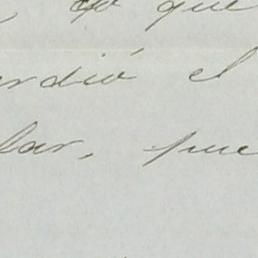 que
rdió el
lar, pue